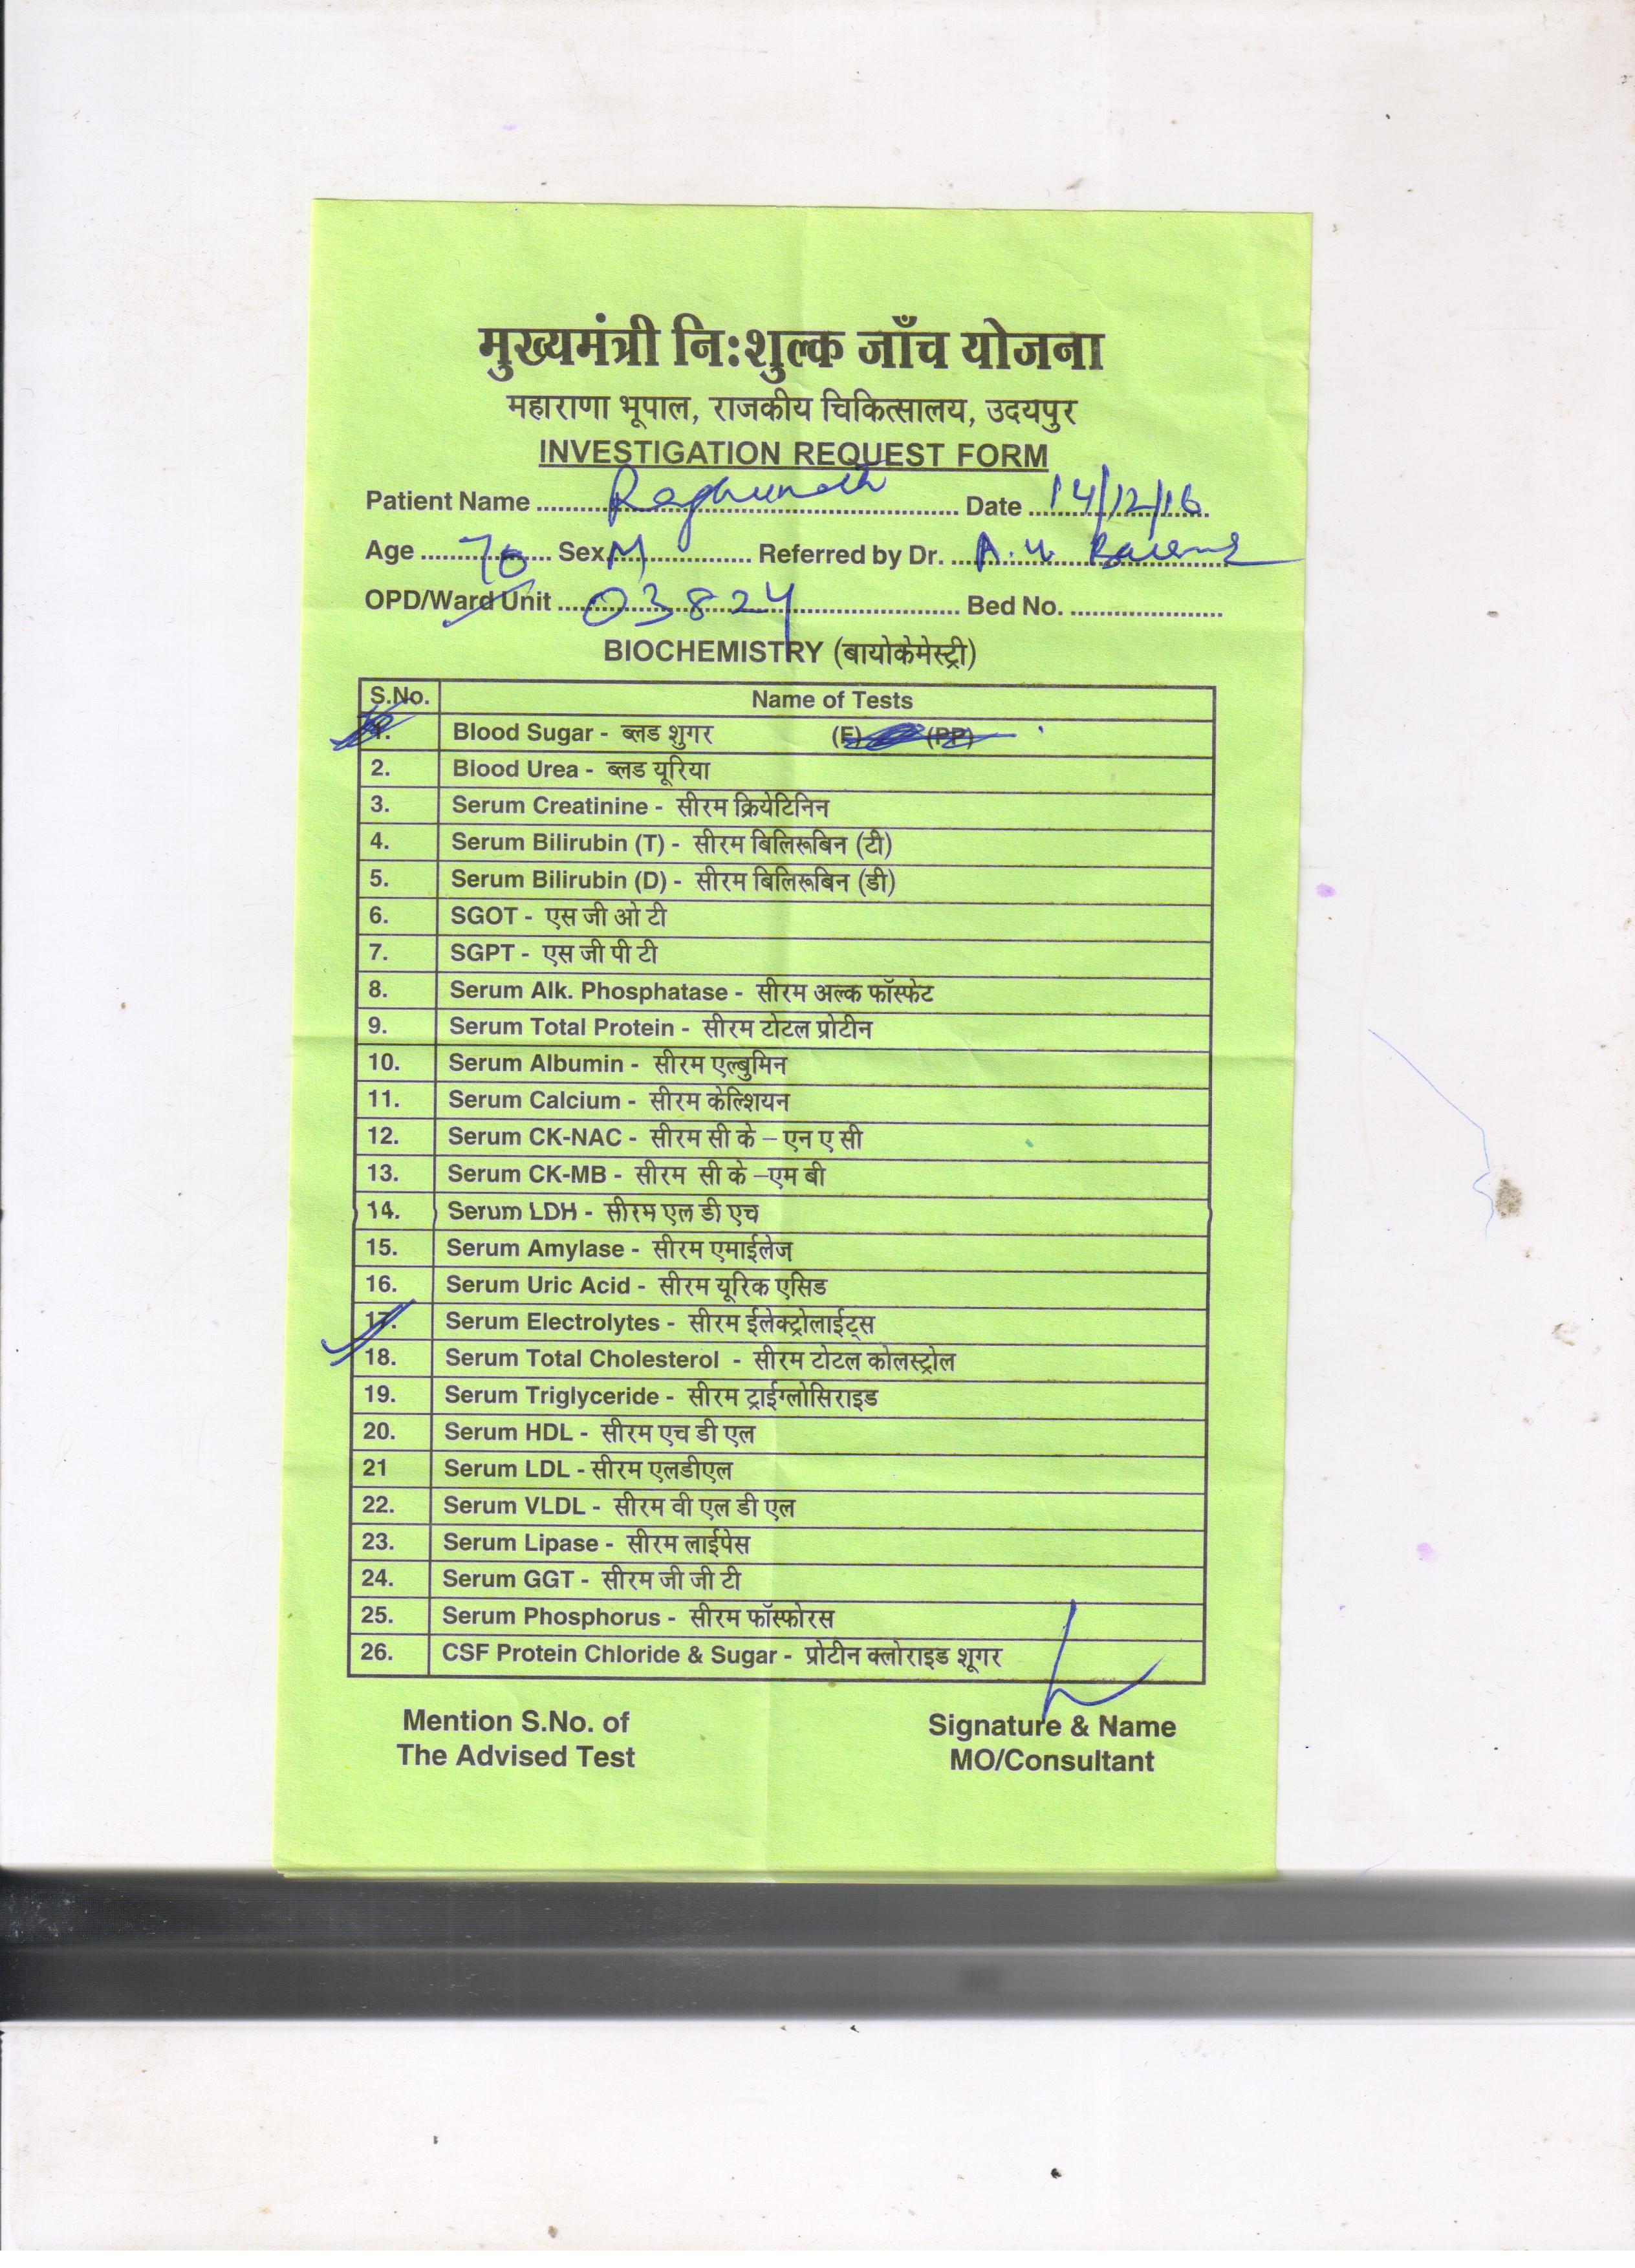 मुख्यमंत्री निःशुल्क जाँच योजना
महाराणा भूपाल, राजकीय चिकित्सालय, उदयपुर
INVESTIGATION REQUEST FORM
Patient Name Raghunath Date 14/12/16
Age 70 Sex M Referred by Dr. A. U.
OPD/Ward Unit 03824 Bed No.
BIOCHEMISTRY (बायोकेमेस्ट्री)
S.No. Name of Tests
1. Blood Sugar - ब्लड शुगर (F) (PP)
2. Blood Urea - ब्लड यूरिया
3. Serum Creatinine - सीरम क्रियेटिनिन
4. Serum Bilirubin (T) - सीरम बिलिरूबिन (टी)
5. Serum Bilirubin (D) - सीरम बिलिरूबिन (डी)
6. SGOT - एस जी ओ टी
7. SGPT - एस जी पी टी
8. Serum Alk. Phosphatase - सीरम अल्क फॉस्फेट
9. Serum Total Protein - सीरम टोटल प्रोटीन
10. Serum Albumin - सीरम एल्बुमिन
11. Serum Calcium - सीरम केल्शियन
12. Serum CK-NAC - सीरम सी के – एन ए सी
13. Serum CK-MB - सीरम सी के –एम बी
14. Serum LDH - सीरम एल डी एच
15. Serum Amylase - सीरम एमाईलेज
16. Serum Uric Acid - सीरम यूरिक एसिड
17. Serum Electrolytes - सीरम ईलेक्ट्रोलाईट्स
18. Serum Total Cholesterol - सीरम टोटल कोलस्ट्रोल
19. Serum Triglyceride - सीरम ट्राईग्लोसिराइड
20. Serum HDL - सीरम एच डी एल
21 Serum LDL - सीरम एलडीएल
22. Serum VLDL - सीरम वी एल डी एल
23. Serum Lipase - सीरम लाईपेस
24. Serum GGT - सीरम जी जी टी
25. Serum Phosphorus - सीरम फॉस्फोरस
26. CSF Protein Chloride & Sugar - प्रोटीन क्लोराइड शूगर
Mention S.No. of
The Advised Test
Signature & Name
MO/Consultant